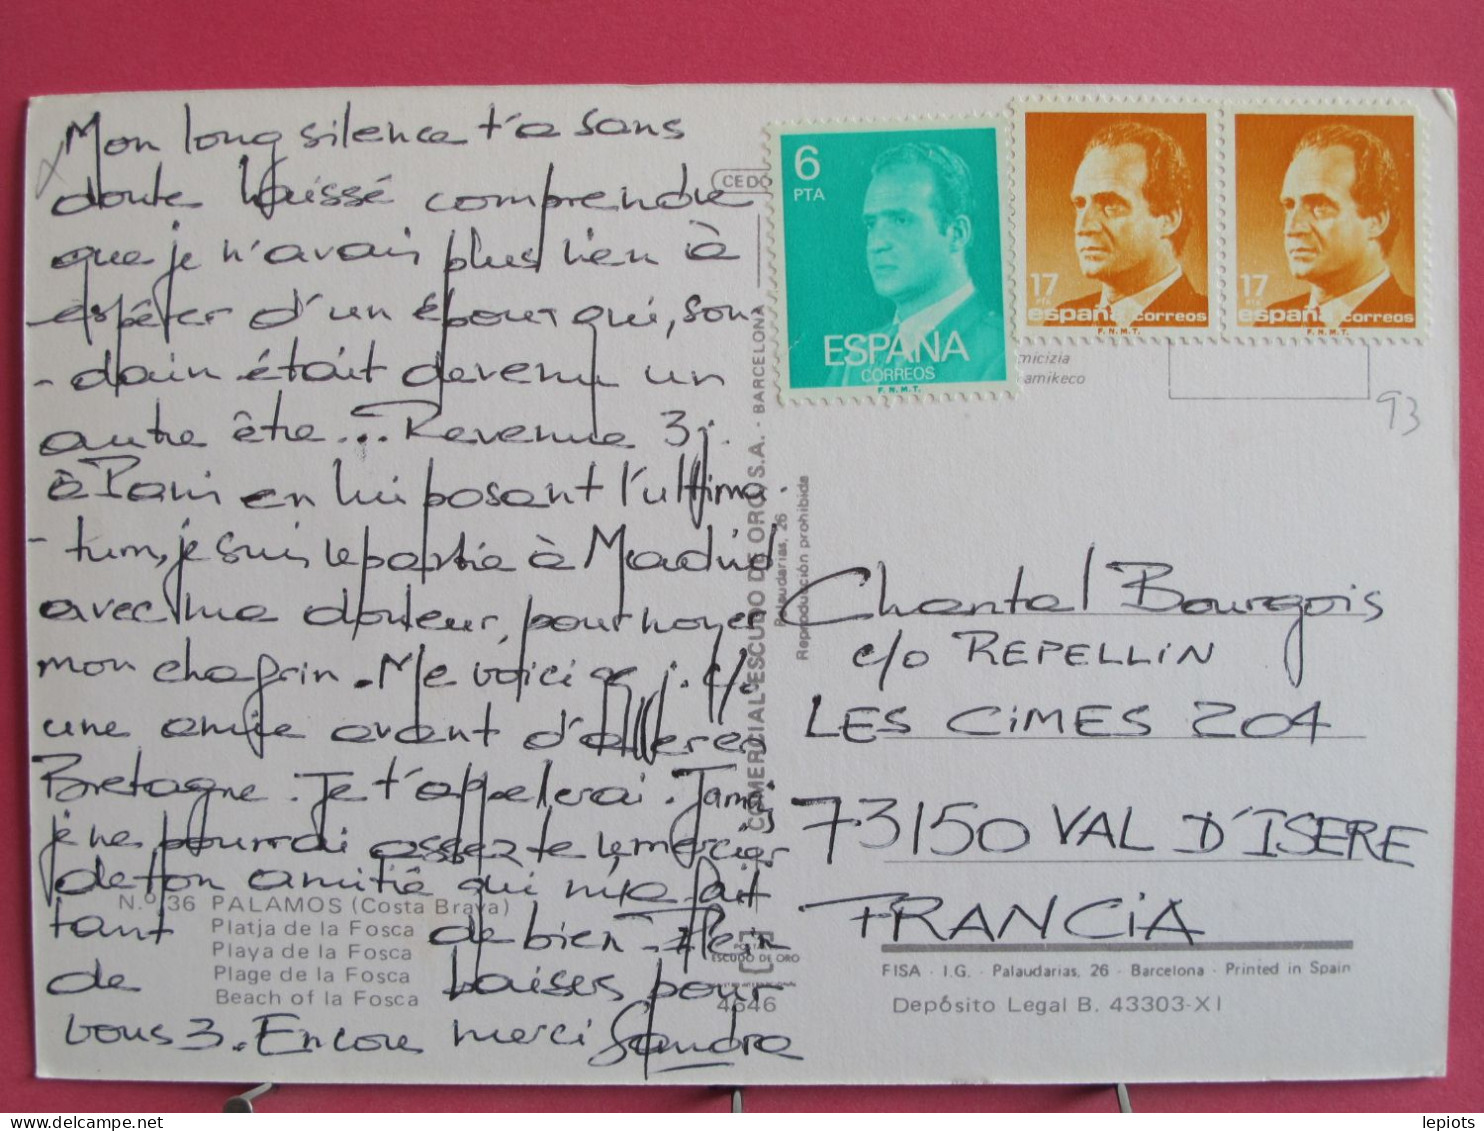 Mon long silence t'a sans
doute laissé comprendre
que je n'avais plus rien à
espérer d'un époux qui, sou-
-dain était devenu un
autre être... Revenue 3 j.
à Paris en lui posant l'ultima-
-tum, je suis repartie à Madrid
avec ma douleur, pour noyer
mon chagrin. Me voici qq j. c/o
une amie avant d'aller en
Bretagne. Je t'appelerai. Jamais
je ne pourrai assez te remercier
de ton amitié qui m'a fait
tant de bien. Plein
de baisers pour
vous 3. Encore merci Sandra
N.º 36 PALAMOS (Costa Brava)
Platja de la Fosca
Playa de la Fosca
Plage de la Fosca
Beach of la Fosca
CEDO
COMERCIAL ESCUDO DE ORO, S.A. - BARCELONA
Palaudarias, 26
Reproducción prohibida
ESCUDO DE ORO
4646
6
PTA
ESPAÑA
CORREOS
F.N.M.T.
17
PTA
españa correos
F.N.M.T.
17
PTA
españa correos
F.N.M.T.
micizia
amikeco
93
Chantal Bourgois
c/o REPELLIN
LES CIMES 204
73150 VAL D'ISERE
FRANCIA
FISA - I.G. - Palaudarias, 26 - Barcelona - Printed in Spain
Depósito Legal B. 43303-XI
lepiots